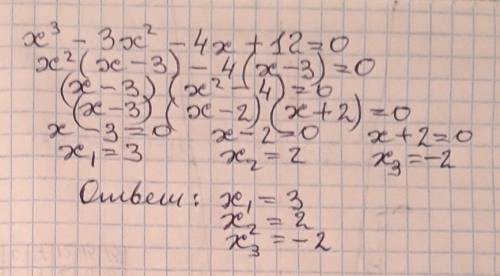 x³ - 3x² - 4x + 12 = 0
x²(x - 3) - 4(x - 3) = 0
(x - 3) (x² - 4) = 0
(x - 3) (x - 2) (x + 2) = 0
x - 3 = 0 x - 2 = 0 x + 2 = 0
x₁ = 3 x₂ = 2 x₃ = -2
Ответ: x₁ = 3
x₂ = 2
x₃ = -2